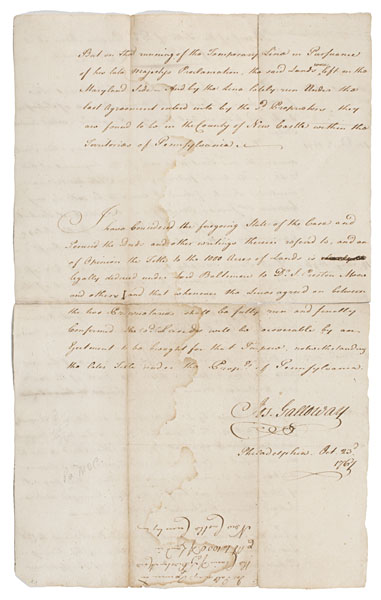 But on the running of the Temporary Line in Pursuance
of his late Majestys Proclamation, the said Lands were left on the
Maryland Side. And by the line lately run Under the
last Agreement entered into by the sd. Proprietors, they
are found to be in the County of New Castle within the
Territories of Pennsylvania.
I have Considered the foregoing State of the Case and
Perused the Deeds and other writings therein referd to, and am
of Opinion the Title to the 1000 Acres of Lands is
legally derived under Lord Baltimore to Dr. S. Preston Moore
and others; and that whenever the Lines agreed on between
the two Provinces shall be fully run and finally
Confirmed the sd. Lands will be recoverable by an
Ejectment to be brought for that Purpose, notwithstanding
the later Title under the Propr. of Pennsylvania.
Jos. Galloway
Philadelphia Oct. 23d.
New Castle County